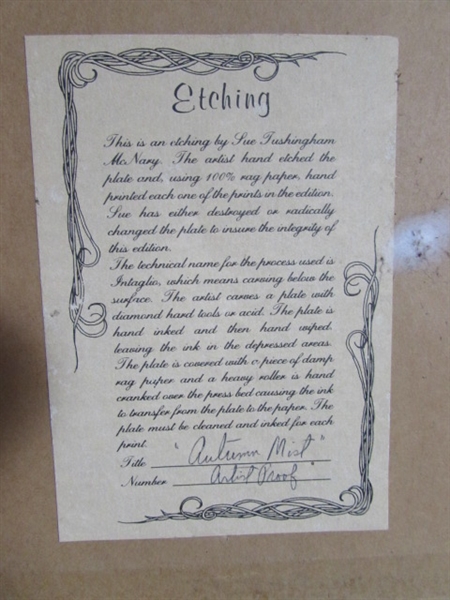 Etching
This is an etching by Sue Tushingham
McNary. The artist hand etched the
plate and, using 100% rag paper, hand
printed each one of the prints in the edition.
Sue has either destroyed or radically
changed the plate to insure the integrity of
this edition.
The technical name for the process used is
Intaglio, which means carving below the
surface. The artist carves a plate with
diamond hard tools or acid. The plate is
hand inked and then hand wiped,
leaving the ink in the depressed areas.
The plate is covered with a piece of damp
rag paper and a heavy roller is hand
cranked over the press bed causing the ink
to transfer from the plate to the paper. The
plate must be cleaned and inked for each
print.
Title "Autumn Mist"
Number Artist Proof